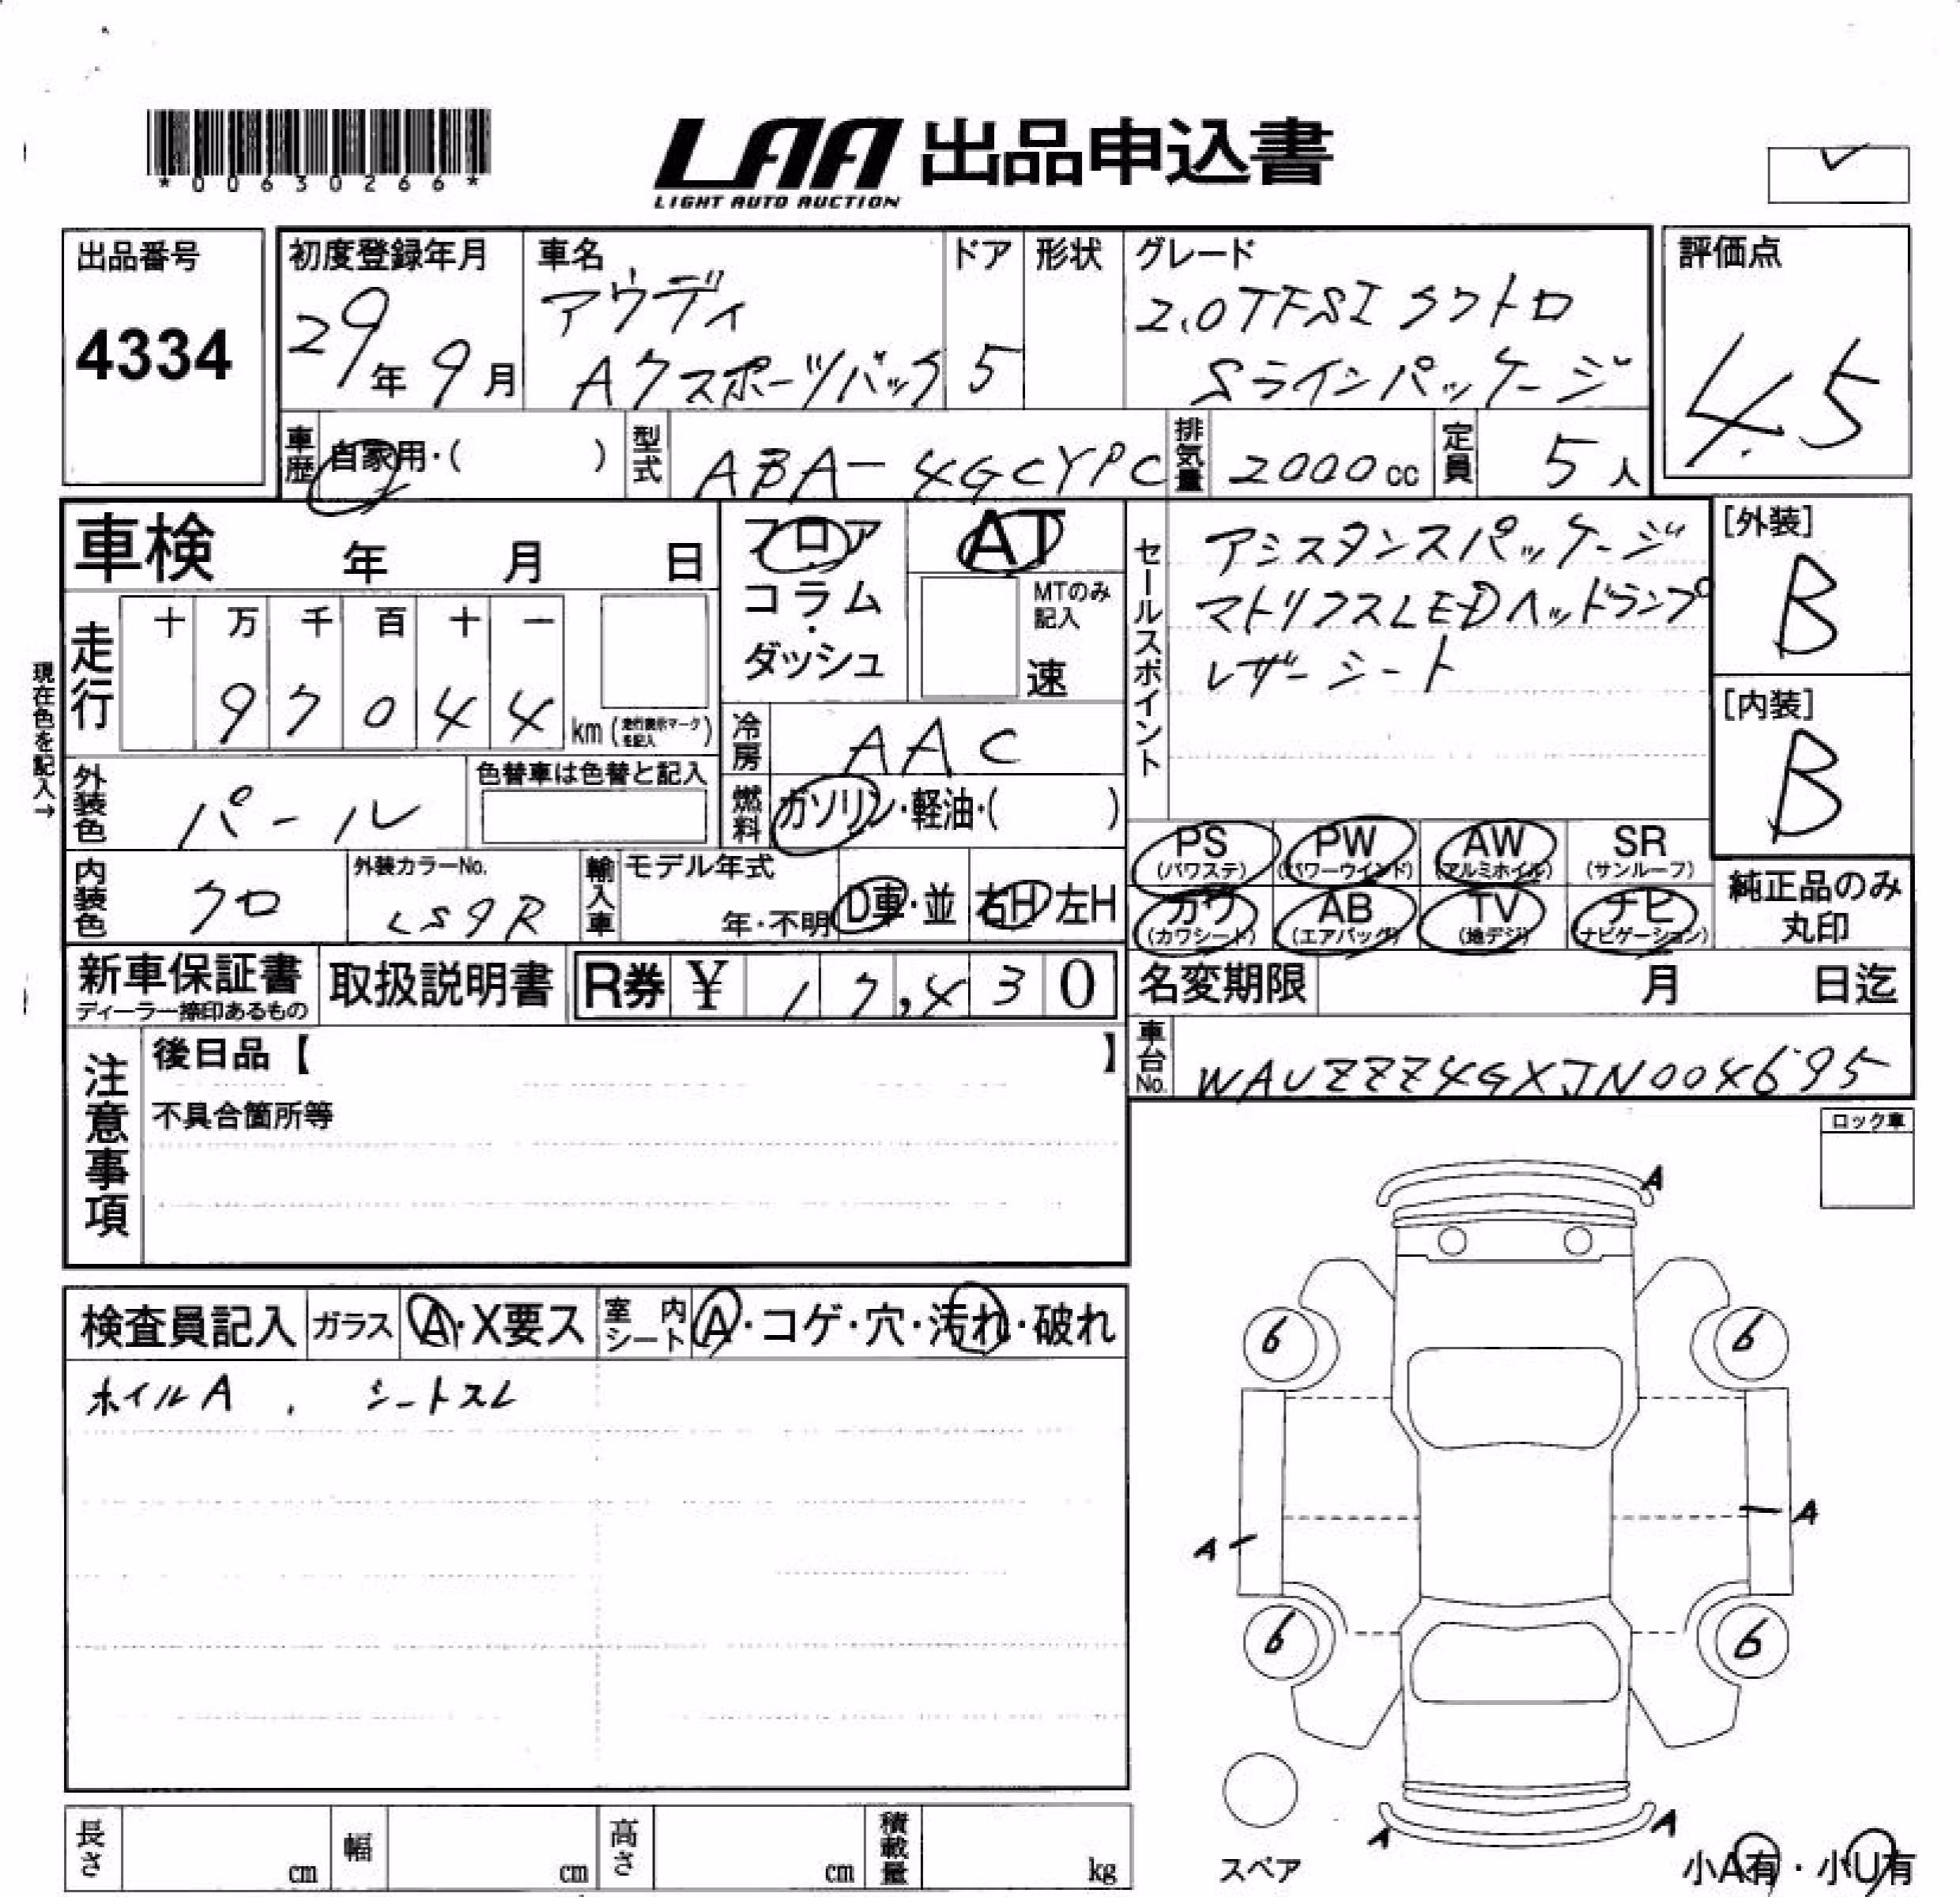 *00630266*
LAA 出品申込書
LIGHT AUTO AUCTION
出品番号
4334
初度登録年月
29年 9月
車名
アウディ
A7スポーツバック
ドア
5
形状
グレード
2.0TFSI クワトロ
Sラインパッケージ
評価点
4.5
車歴
自家用・( )
型式
ABA-4GCYPC
排気量
2000cc
定員
5人
車検 年 月 日
フロア
コラム
・
ダッシュ
AT
MTのみ
記入
速
セールスポイント
アシスタンスパッケージ
マトリクスLEDヘッドランプ
レザーシート
[外装]
B
[内装]
B
現在色を記入→
走行
十 万 千 百 十 一
9 7 0 4 4
km (走行表示マークを記入)
冷房
AAC
外装色
パール
色替車は色替と記入
燃料
ガソリン・軽油・( )
PS
(パワステ)
PW
(パワーウインド)
AW
(アルミホイル)
SR
(サンルーフ)
カワ
(カワシート)
AB
(エアバッグ)
TV
(地デジ)
ナビ
(ナビゲーション)
純正品のみ
丸印
内装色
クロ
外装カラーNo.
LS9R
輸入車
モデル年式
年・不明
D車・並
右H 左H
新車保証書
ディーラー捺印あるもの
取扱説明書
R券 ¥ 17,430
名変期限 月 日迄
車台No.
WAUZZZ4GXJN004695
注意事項
後日品【 】
不具合箇所等
ロック車
検査員記入
ガラス
A・X要ス
室内シート
A・コゲ・穴・汚れ・破れ
ホイルA , シートスレ
A
6 6
A A
6 6
A A
スペア
小A有・小U有
長さ cm
幅 cm
高さ cm
積載量 kg